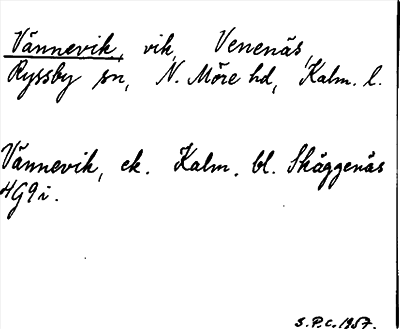 Vännevik, vik, Venenäs,
Ryssby sn, N. Möre hd, Kalm. l.
Vännevik, ek. Kalm. bl. Skäggenäs
4G9i.
S.P.C. 1957.